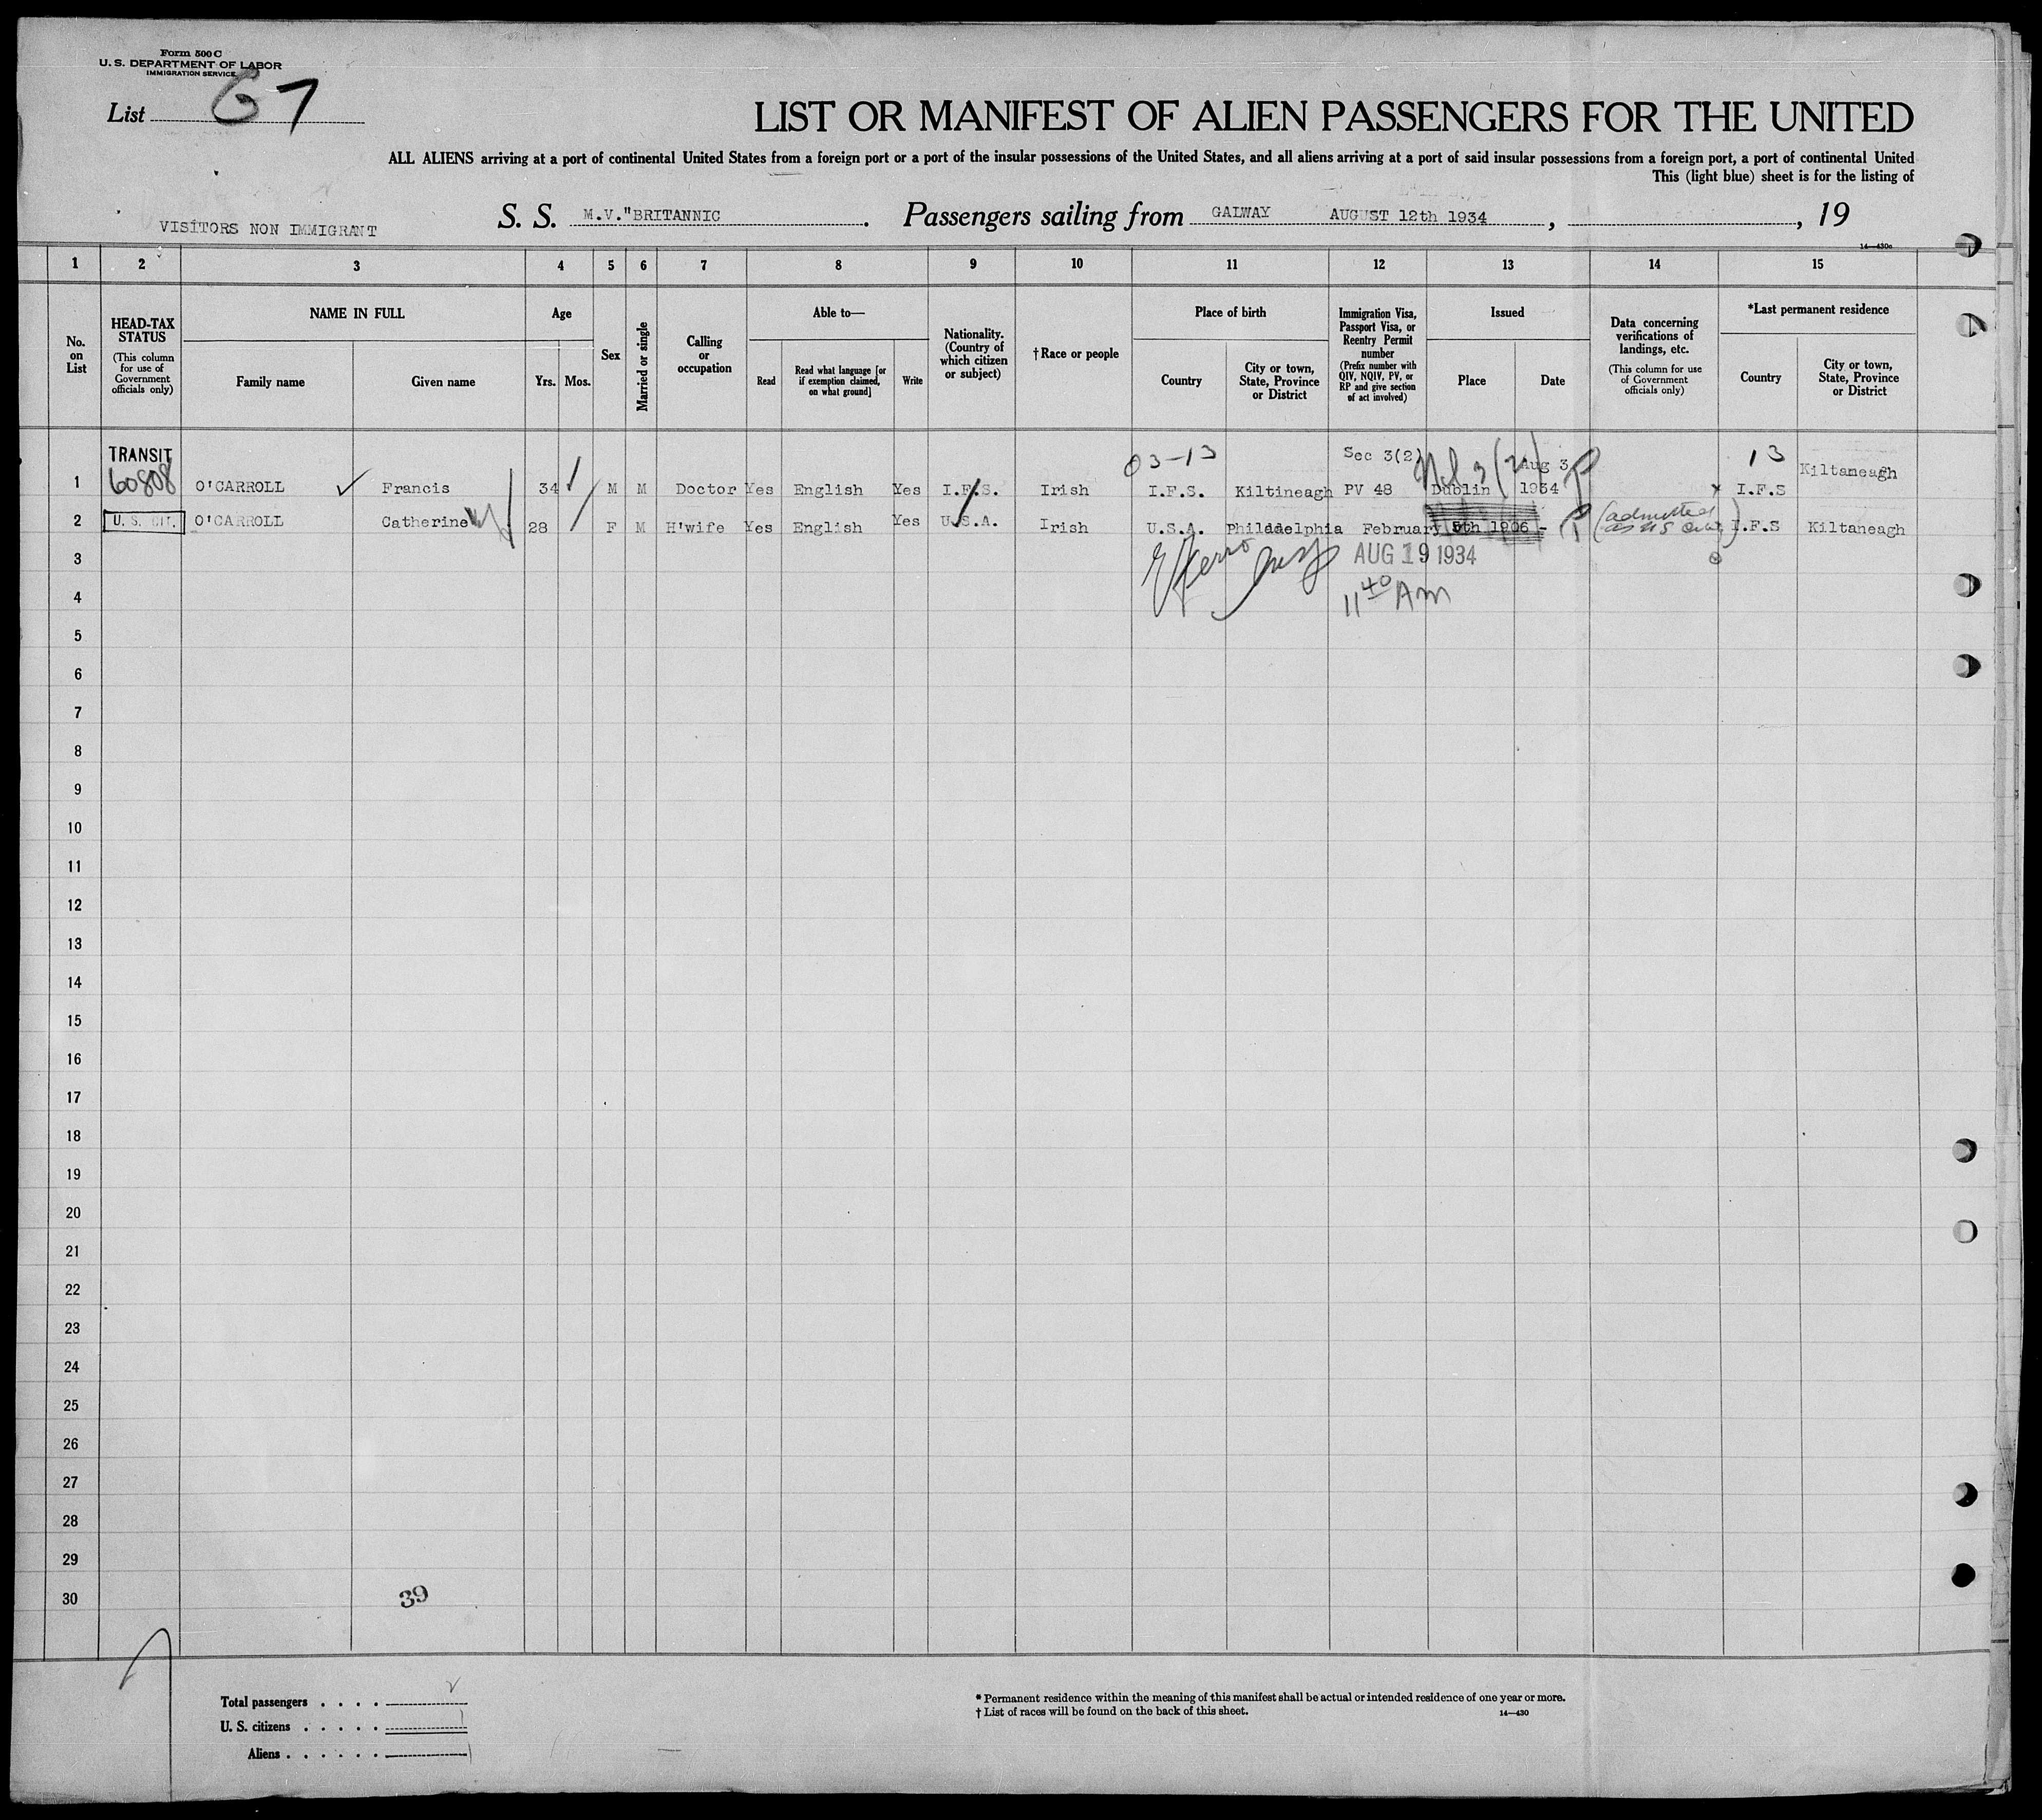 Form 500 C
U. S. DEPARTMENT OF LABOR
IMMIGRATION SERVICE
List 67
LIST OR MANIFEST OF ALIEN PASSENGERS FOR THE UNITED
ALL ALIENS arriving at a port of continental United States from a foreign port or a port of the insular possessions of the United States, and all aliens arriving at a port of said insular possessions from a foreign port, a port of continental United
This (light blue) sheet is for the listing of
VISITORS NON IMMIGRANT
S. S. M.V."BRITANNIC. Passengers sailing from GALWAY AUGUST 12th 1934, , 19
14—430c
1 2 3 4 5 6 7 8 9 10 11 12 13 14 15
No. on List
HEAD-TAX STATUS
(This column for use of Government officials only)
NAME IN FULL
Family name
Given name
Age
Yrs.
Mos.
Sex
Married or single
Calling or occupation
Able to—
Read
Read what language [or if exemption claimed, on what ground]
Write
Nationality. (Country of which citizen or subject)
†Race or people
Place of birth
Country
City or town, State, Province or District
Immigration Visa, Passport Visa, or Reentry Permit number
(Prefix number with QIV, NQIV, PV, or RP and give section of act involved)
Issued
Place
Date
Data concerning verifications of landings, etc.
(This column for use of Government officials only)
*Last permanent residence
Country
City or town, State, Province or District
TRANSIT 03-13 Sec 3(2) 3(2) Aug 3 13 Kiltaneagh
1 60808 O'CARROLL Francis 34 M M Doctor Yes English Yes I.F.S. Irish I.F.S. Kiltineagh PV 48 Dublin 1934 I.F.S
2 U. S. CIT. O'CARROLL Catherine 28 F M H'wife Yes English Yes U.S.A. Irish U.S.A. Philadelphia February 5th 1906 - (admitted as US Citiz) I.F.S Kiltaneagh
3 AUG 19 1934
4 11 40 Am
5
6
7
8
9
10
11
12
13
14
15
16
17
18
19
20
21
22
23
24
25
26
27
28
29
30
39
Total passengers . . . .
U. S. citizens . . . . .
Aliens . . . . . .
* Permanent residence within the meaning of this manifest shall be actual or intended residence of one year or more.
† List of races will be found on the back of this sheet.
14—430